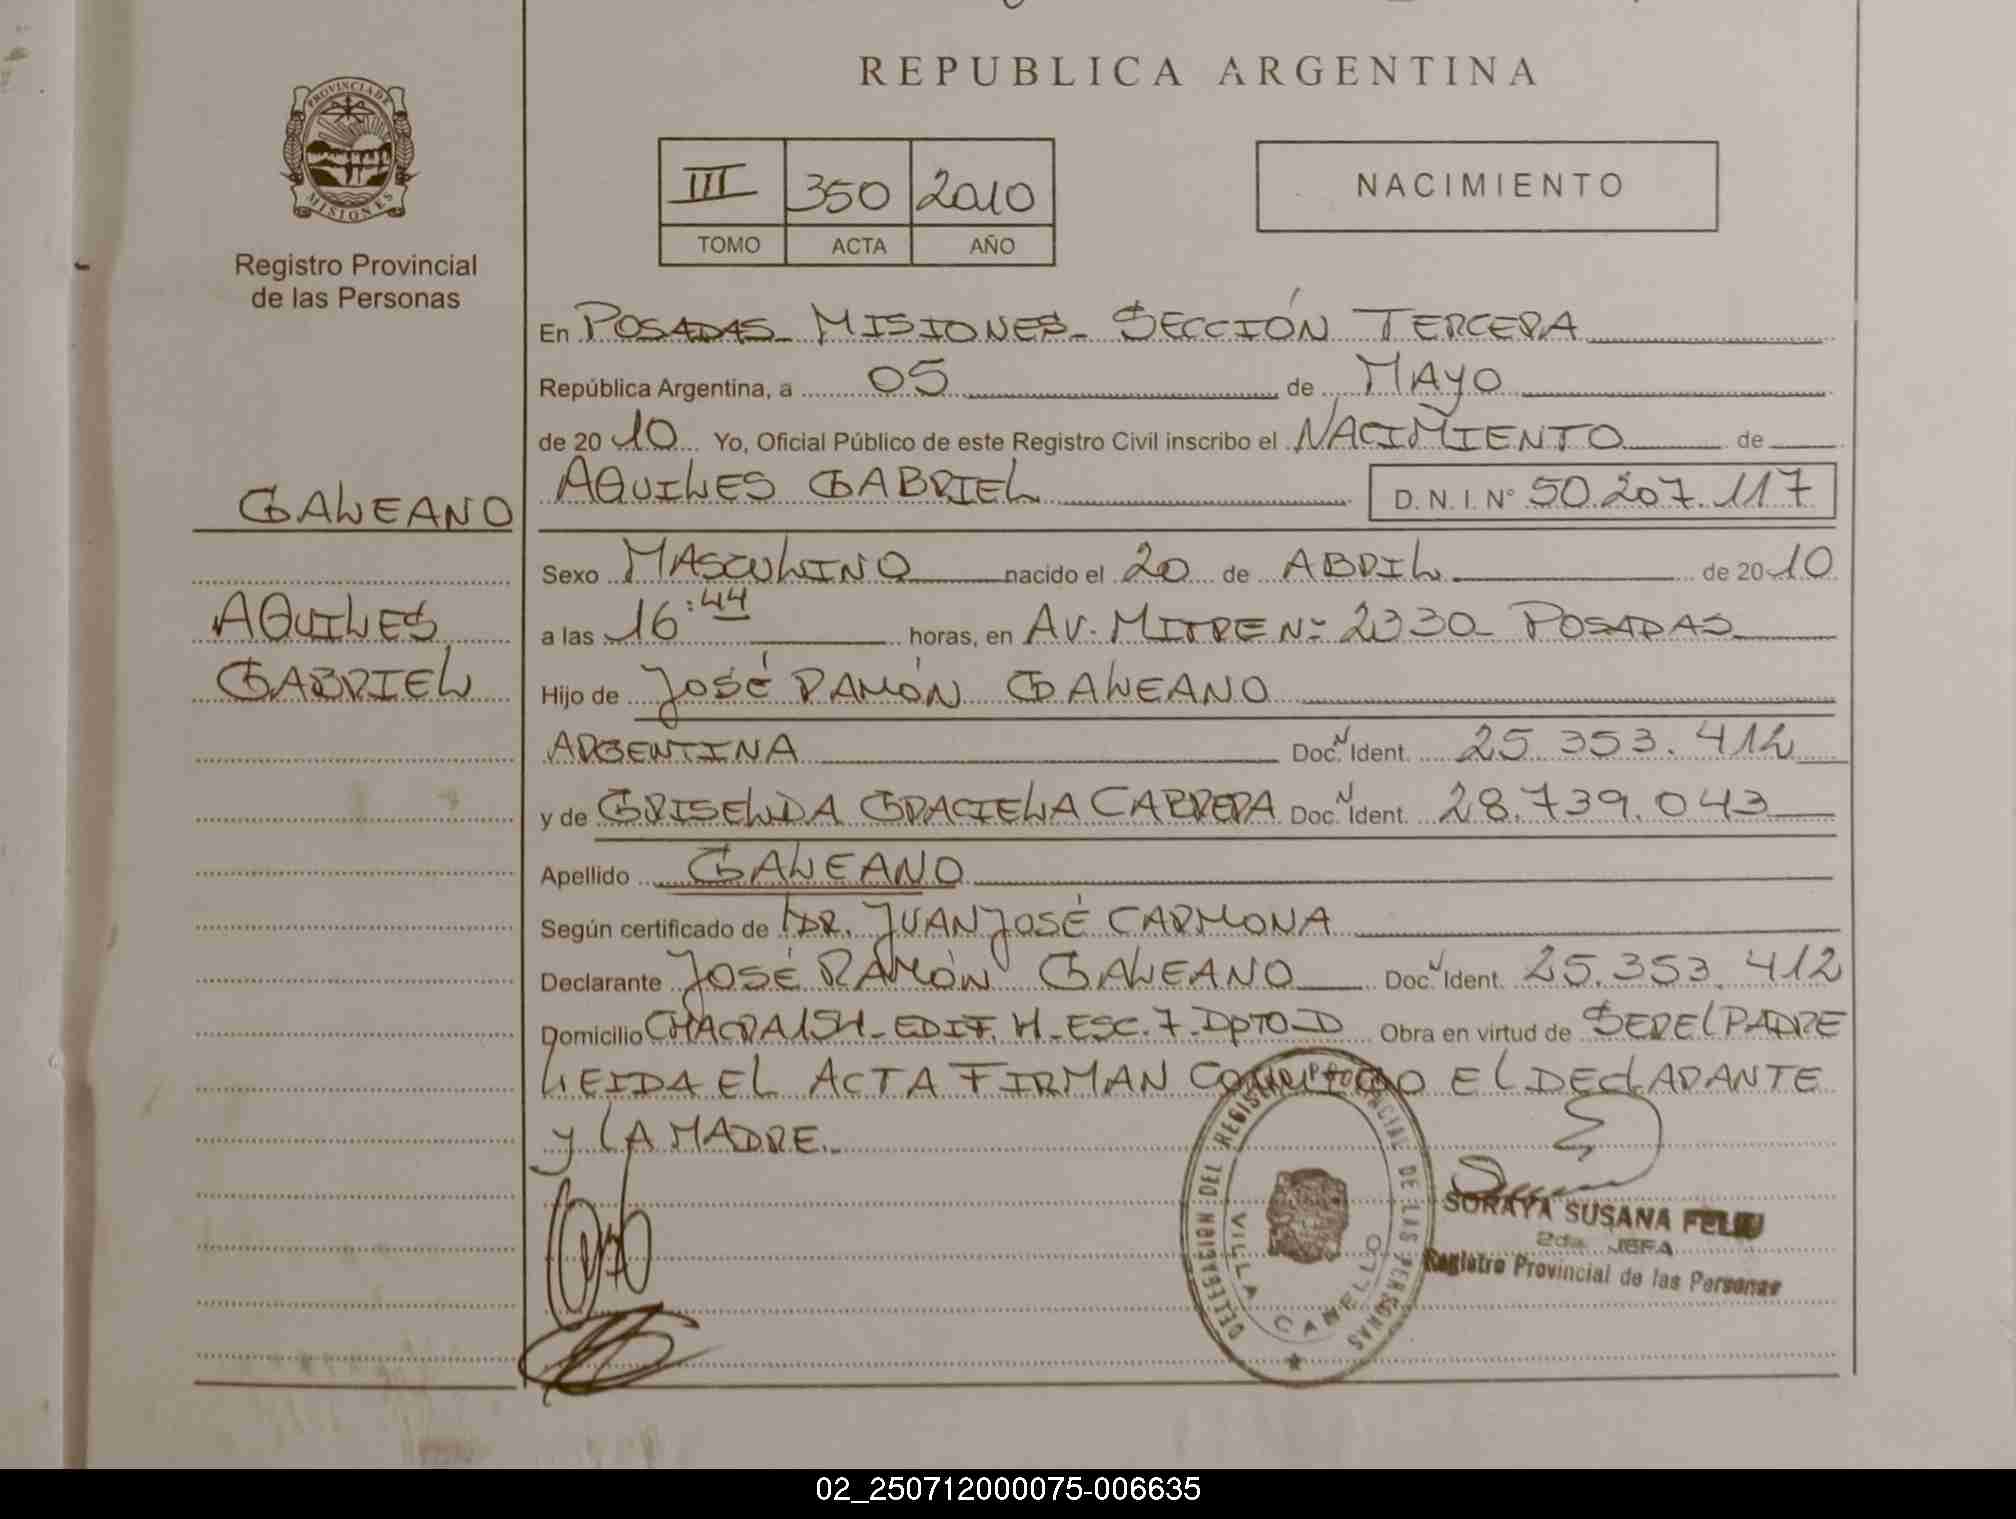 REPUBLICA ARGENTINA
PROVINCIA DE
MISIONES
Registro Provincial
de las Personas
III 350 2010
TOMO ACTA AÑO
NACIMIENTO
En POSADAS - MISIONES - SECCIÓN TERCERA
República Argentina, a 05 de MAYO
de 2010 Yo, Oficial Público de este Registro Civil inscribo el NACIMIENTO de
GALEANO
AQUILES GABRIEL D. N. I. N° 50.207.117
Sexo MASCULINO nacido el 20 de ABRIL de 2010
AQUILES
a las 16:44 horas, en AV. MITRE Nº 2330 - POSADAS
GABRIEL
Hijo de JOSÉ RAMÓN GALEANO
ARGENTINA Doc. N Ident. 25.353.412
y de GRISELDA GRACIELA CABRERA Doc. N Ident. 28.739.043
Apellido GALEANO
Según certificado de DR. JUAN JOSÉ CARMONA
Declarante JOSÉ RAMÓN GALEANO Doc. N Ident. 25.353.412
Domicilio CHACRA 154 - EDIF. H - ESC. 7 - DPTO - D Obra en virtud de SER EL PADRE
LEIDA EL ACTA FIRMAN CONMIGO EL DECLARANTE
Y LA MADRE.
DELEGACION DEL REGISTRO PROVINCIAL DE LAS PERSONAS
VILLA CABELLO
SORAYA SUSANA FELIU
2da. JEFA
Registro Provincial de las Personas
02_250712000075-006635